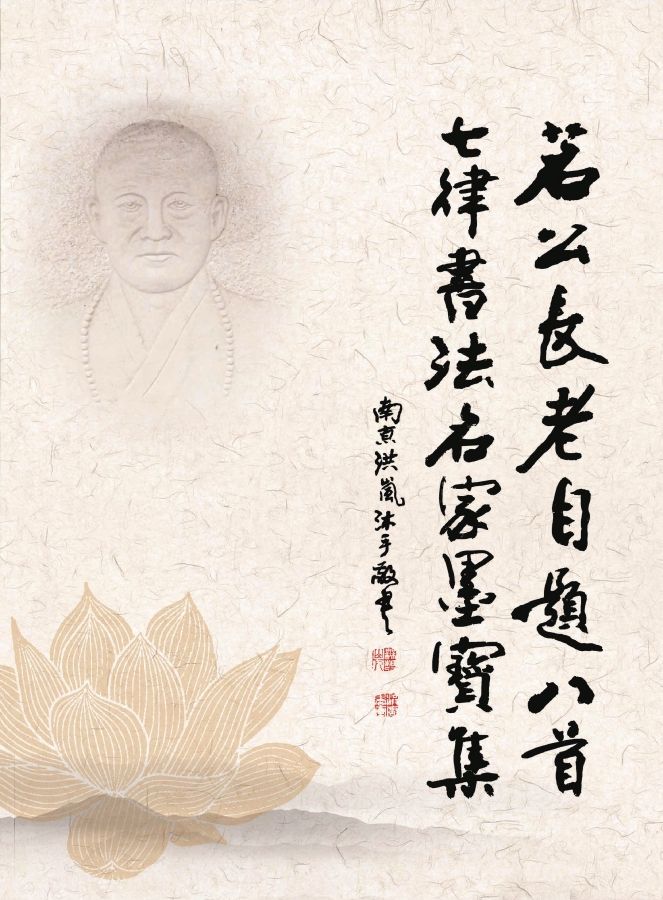 茗公長老自題八首
七律書法名家墨寶集
南京洪嵐沐手敬書